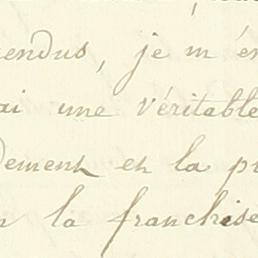 endus, je m'en
ai une véritable
dement et la pr
n la franchise